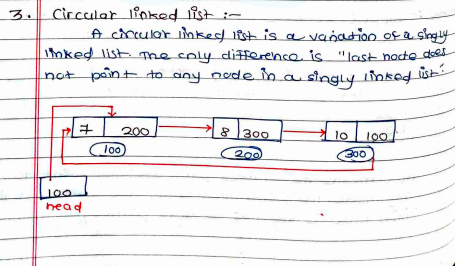 3. Circular linked list :-
A circular linked list is a variation of a singly
linked list. The only difference is "last node does
not point to any node in a singly linked list."
7 200 8 300 10 100
100 200 300
100
head